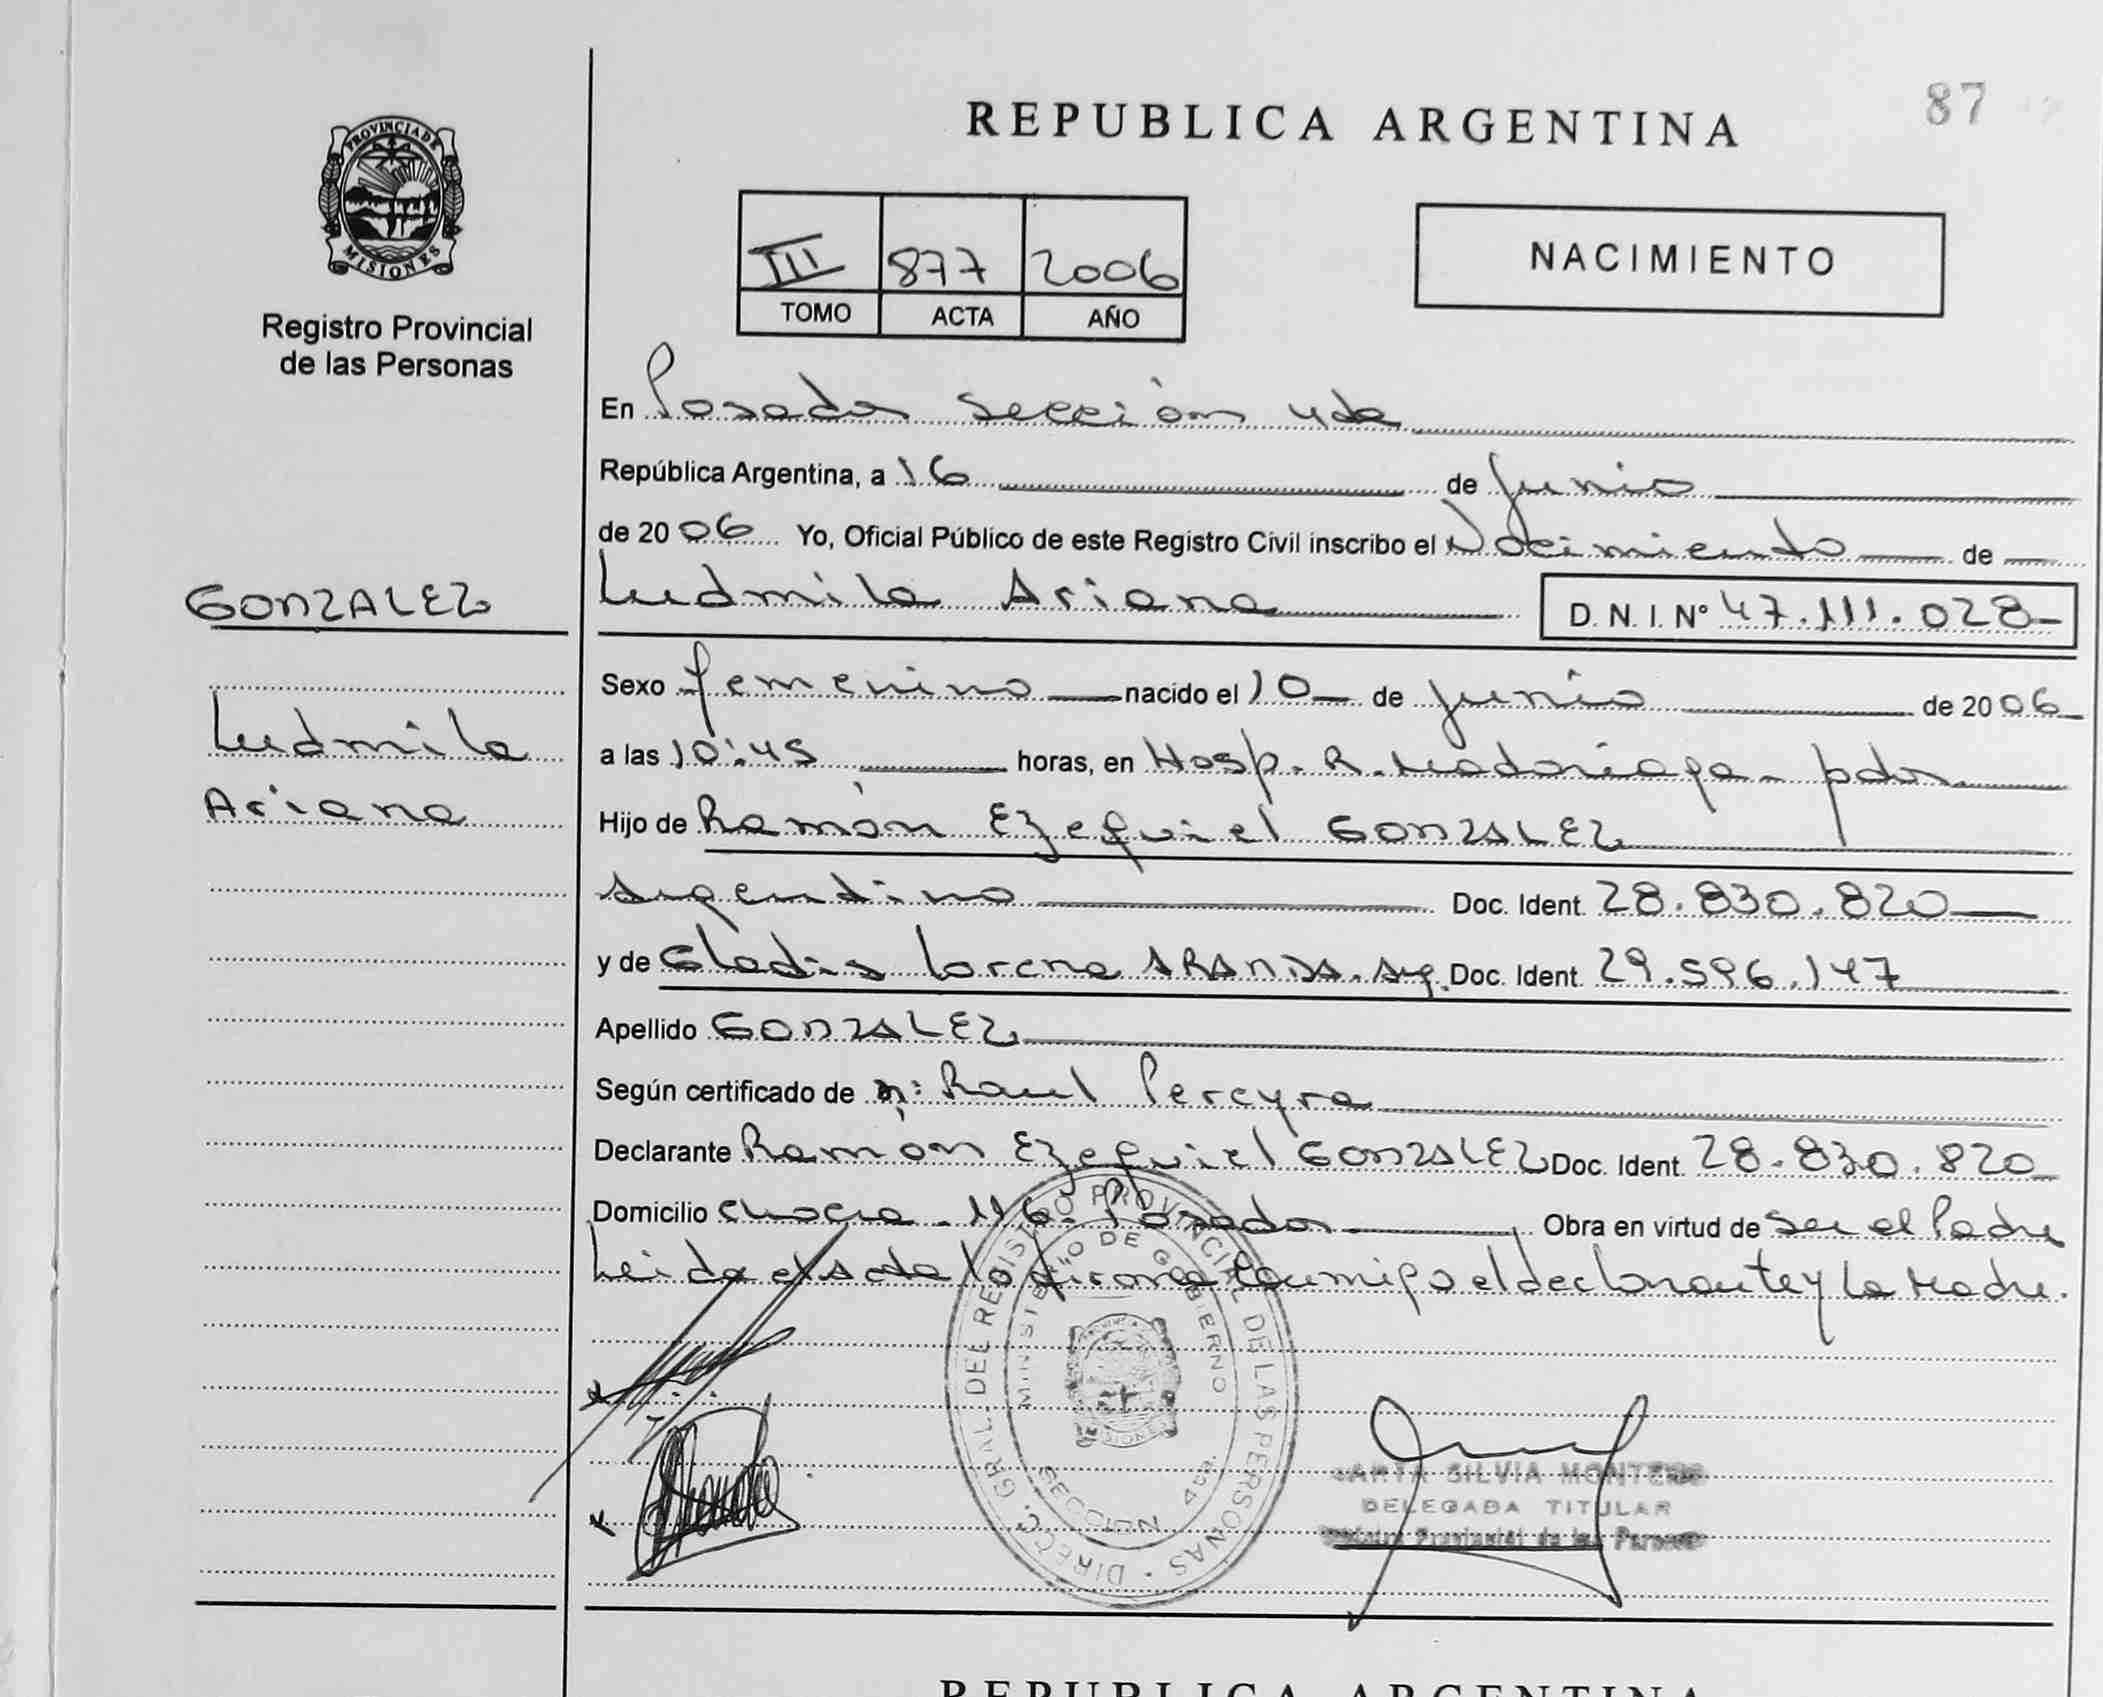 87
REPUBLICA ARGENTINA
PROVINCIA DE
MISIONES
Registro Provincial
de las Personas
III 877 2006
TOMO ACTA AÑO
NACIMIENTO
En Posadas sección 4ta
República Argentina, a 16 de Junio
de 2006 Yo, Oficial Público de este Registro Civil inscribo el Nacimiento de
GONZALEZ
Ludmila Ariana D. N. I. Nº 47.111.028
Sexo femenino nacido el 10 de junio de 2006
Ludmila
Ariana
a las 10:45 horas, en Hosp. R. Madariaga - pdas
Hijo de Ramón Ezequiel GONZALEZ
argentino Doc. Ident. 28.830.820
y de Gladis Lorena ARANDA. arg. Doc. Ident. 29.596.147
Apellido GONZALEZ
Según certificado de Raul Pereyra
Declarante Ramón Ezequiel GONZALEZ Doc. Ident. 28.830.820
Domicilio chacra 116. Posadas Obra en virtud de ser el Padre
Leida el acta la firma conmigo el declarante y la Madre.
DIRECC. GRAL. DEL REGISTRO PROVINCIAL DE LAS PERSONAS
MINISTERIO DE GOBIERNO
SECCION 4ta.
SILVIA MONTERO
DELEGADA TITULAR
Registro Provincial de las Personas
REPUBLICA ARGENTINA